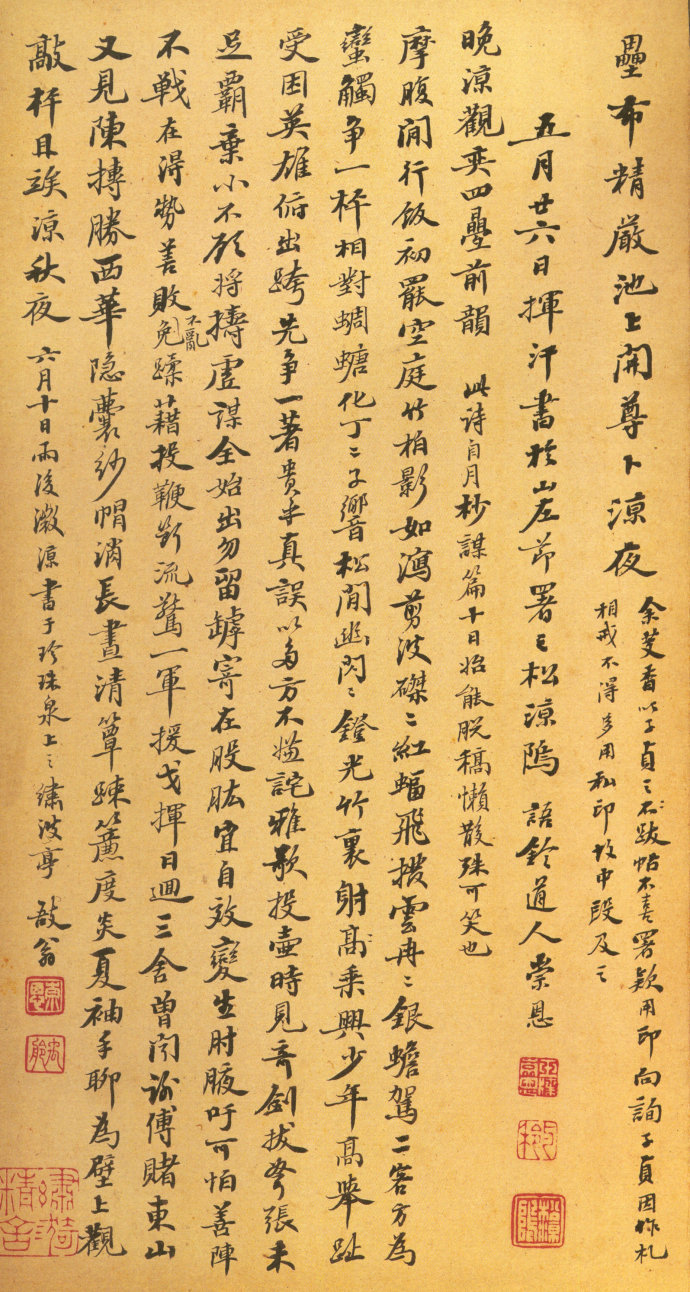 壘布精嚴池上開尊卜涼夜
余芟香以子貞之不跋帖不喜署款用印向詢子貞因作札
相戒不得多用私印故中段及之
五月廿六日揮汗書於山左節署之松涼隝 語舲道人崇恩
晚涼觀弈四疊前韻 此詩自月杪謀篇十日始能脫稿懶散殊可笑也
摩腹閒行飯初罷空庭竹柏影如瀉剪波磔〻紅蝠飛撥雲冉〻銀蟾駕二客方為
蠻觸爭一枰相對蜩螗化丁〻子響松間幽閃〻鐙光竹裏射高乘興少年高舉趾
受困英雄俯出跨先爭一著貴乎真誤以多方不嫌詫雅歌投壺時見奇劍拔弩張未
足霸棄小不顧將擣虛謀全始出勿留罅寄在股肱宜自效變生肘腋吁可怕善陣
不戰在得勢善敗不亂免蹂藉投鞭斷流驚一軍援戈揮日迴三舍曾聞謝傅賭東山
又見陳摶勝西華隱囊紗帽消長晝清簟疎簾度炎夏袖手聊為壁上觀
敲枰且竢涼秋夜 六月十日雨後微涼書于珍珠泉上之繡波亭 敔翁